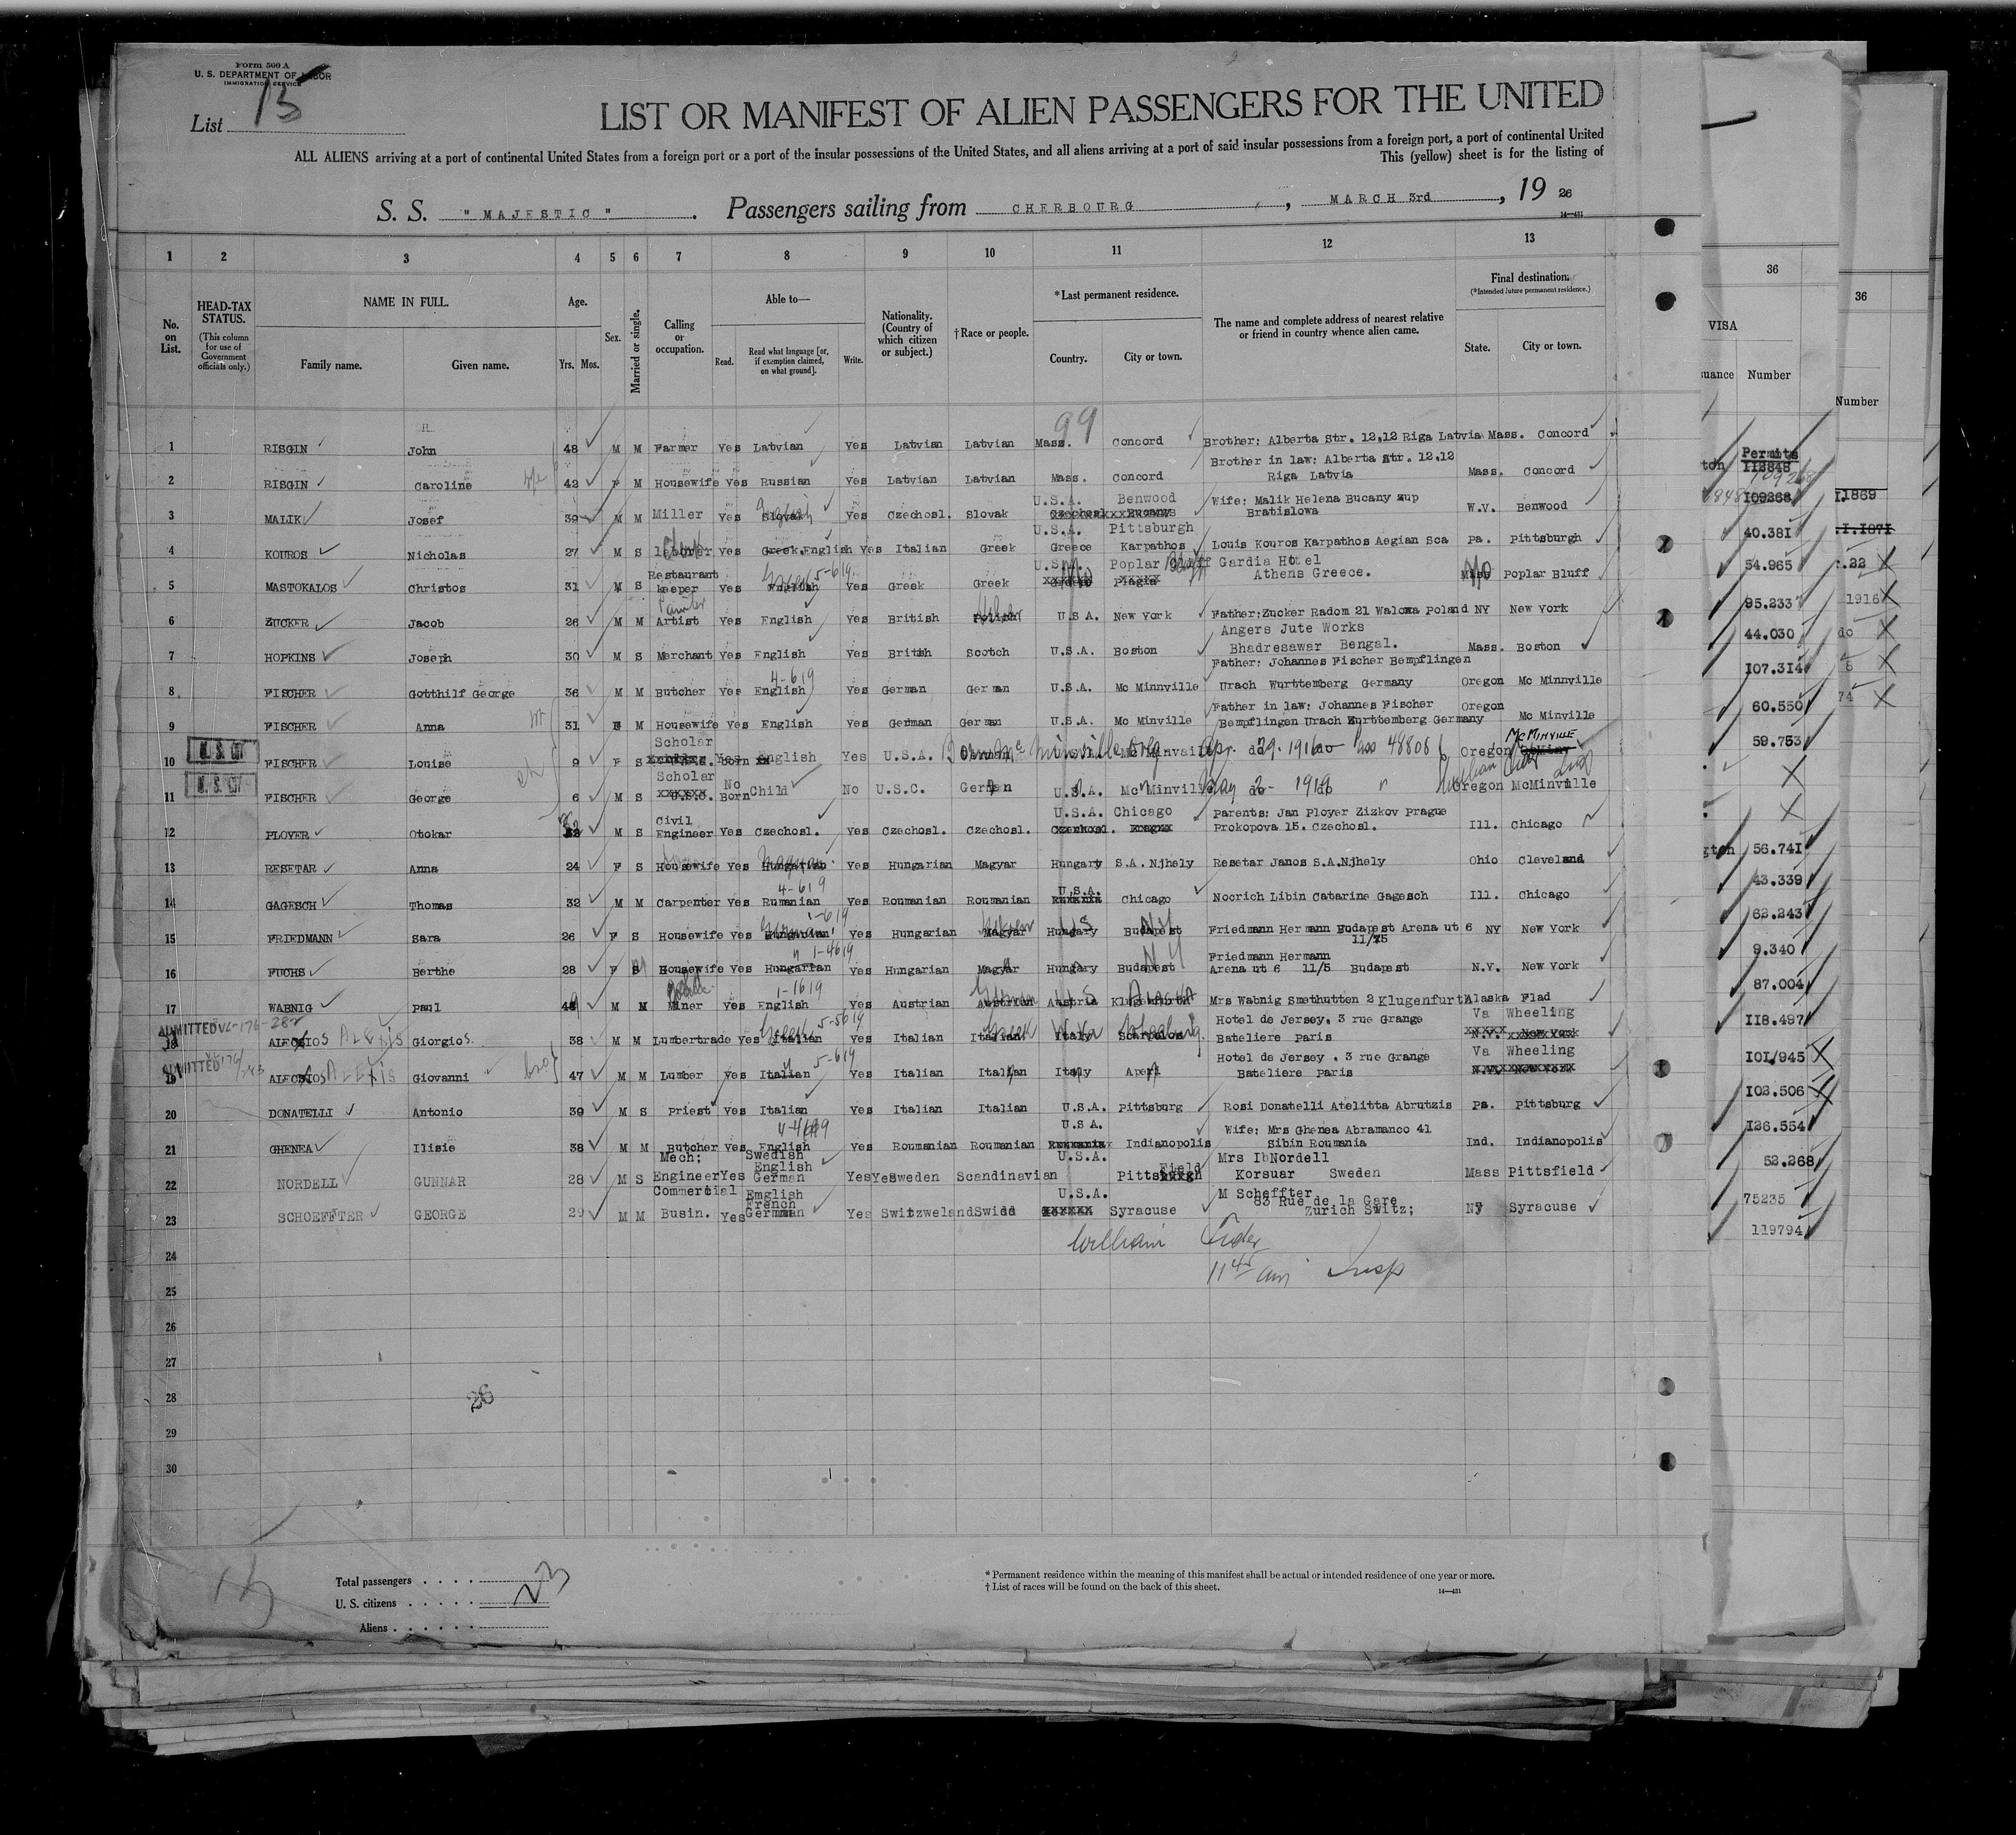 Form 500 A
U. S. DEPARTMENT OF LABOR
IMMIGRATION SERVICE
List 15
LIST OR MANIFEST OF ALIEN PASSENGERS FOR THE UNITED
ALL ALIENS arriving at a port of continental United States from a foreign port or a port of the insular possessions of the United States, and all aliens arriving at a port of said insular possessions from a foreign port, a port of continental United
This (yellow) sheet is for the listing of
S. S. "MAJESTIC" . Passengers sailing from CHERBOURG , MARCH 3rd , 19 26
14—431
1 2 3 4 5 6 7 8 9 10 11 12 13
No. on List.
HEAD-TAX STATUS.
(This column for use of Government officials only.)
NAME IN FULL.
Family name. Given name.
Age.
Yrs. Mos.
Sex.
Married or single.
Calling or occupation.
Able to—
Read. Read what language [or, if exemption claimed, on what ground]. Write.
Nationality. (Country of which citizen or subject.)
†Race or people.
*Last permanent residence.
Country. City or town.
The name and complete address of nearest relative or friend in country whence alien came.
Final destination.
(*Intended future permanent residence.)
State. City or town.
36
VISA
Number
36
Number
99
1 RISGIN John 48 M M Farmer Yes Latvian Yes Latvian Latvian Mass. Concord Brother: Alberta Str. 12,12 Riga Latvia Mass. Concord
Permits
112848
2 RISGIN Caroline 42 F M Housewife Yes Russian Yes Latvian Latvian Mass. Concord Brother in law: Alberta Str. 12,12 Riga Latvia Mass. Concord
109268
3 MALIK Josef 39 M M Miller Yes Slovak Yes Czechosl. Slovak U.S.A. Benwood Wife: Malik Helena Bucany zup Bratislowa W.V. Benwood
40.381
4 KOUROS Nicholas 27 M S laborer Yes Greek.English Yes Italian Greek U.S.A. Pittsburgh Greece Karpathos Louis Kouros Karpathos Aegian Sca Pa. Pittsburgh
54.965
5 MASTOKALOS Christos 31 M S Restaurant keeper Yes English 5-619 Yes Greek Greek U.S.A. Poplar Bluff Gardia Hotel Athens Greece. Mo Poplar Bluff
95.233
6 ZUCKER Jacob 26 M M Painter Artist Yes English Yes British Polish U.S.A. New York Father:Zucker Radom 21 Walowa Poland NY New York
44.030
7 HOPKINS Joseph 30 M S Merchant Yes English Yes British Scotch U.S.A. Boston Angers Jute Works Bhadresawar Bengal. Mass. Boston
107.314
8 FISCHER Gotthilf George 36 M M Butcher Yes English 4-619 Yes German German U.S.A. Mc Minnville Father: Johannes Fischer Bempflingen Urach Wurttemberg Germany Oregon Mc Minnville
60.550
9 FISCHER Anna 31 F M Housewife Yes English Yes German German U.S.A. Mc Minville Father in law: Johannes Fischer Bempflingen Urach Wurttemberg Germany Oregon Mc Minville
59.753
10 FISCHER Louise 9 F S Scholar Yes English Yes U.S.A. Born Mc Minnville Oreg Apr. 29-1916 Pass 48806 Oregon McMINVILLE
11 FISCHER George 6 M S Scholar U.S.C. Born No Child No U.S.C. German U.S.A. McMinville May 20- 1919 " Oregon McMinville
12 PLOYER Otokar M S Civil Engineer Yes Czechosl. Yes Czechosl. Czechosl. U.S.A. Chicago Parents: Jan Ployer Zizkov Prague Prokopova 15. Czechosl. Ill. Chicago
56.741
13 RESETAR Anna 24 F S Housewife Yes Hungarian Yes Hungarian Magyar Hungary S.A. Njhely Resetar Janos S.A.Njhely Ohio Cleveland
43.339
14 GAGESCH Thomas 32 M M Carpenter Yes Rumanian 4-619 Yes Roumanian Roumanian U.S.A. Chicago Nocrich Libin Catarine Gagesch Ill. Chicago
62.243
15 FRIEDMANN Sara 26 F S Housewife Yes Hungarian German 1-619 Yes Hungarian Magyar Hebrew Hungary US Budapest NY Friedmann Hermann Budapest Arena ut 6 11/25 NY New York
9.340
16 FUCHS Berthe 28 F S Housewife Yes Hungarian 1-4619 Yes Hungarian Magyar Hungary Budapest NY Friedmann Hermann Arena ut 6 11/5 Budapest N.Y. New York
87.004
17 WABNIG Paul M M Miner Yes English 1-1619 Yes Austrian Austrian German Austria US Klugenfurth Alaska Mrs Wabnig Smethutten 2 Klugenfurth Alaska Flad
118.497
ADMITTED
18 ALECSIOS ALEXIS Giorgios 38 M M Lumbertrade Yes Italian Greek 5-5619 Yes Italian Italian Greek Italy W Va Scarpelos Wheeling Hotel de Jersey. 3 rue Grange Bateliere Paris Va Wheeling
N.Y. New York
101/945
ADMITTED
19 ALECSIOS ALEXIS Giovanni 47 M M Lumber Yes Italian 5-619 Yes Italian Italian Italy Aperi Hotel de Jersey . 3 rue Grange Bateliere Paris Va Wheeling
102.506
20 DONATELLI Antonio 39 M S Priest Yes Italian Yes Italian Italian U.S.A. Pittsburg Rosi Donatelli Atelitta Abrutzis Pa. Pittsburg
126.554
21 GHENEA Ilisie 38 M M Butcher Yes English Yes Roumanian Roumanian U.S.A. Indianopolis Wife: Mrs Ghenea Abramanco 41 Sibin Roumania Ind. Indianopolis
52.268
22 NORDELL GUNNAR 28 M S Mech: Engineer Yes Swedish English German Yes Sweden Scandinavian U.S.A. Pittsfield Mrs IbNordell Korsuar Sweden Mass Pittsfield
75235
23 SCHOEFFTER GEORGE 29 M M Commercial Busin. Yes Emglish French German Yes Switzweland Swiss U.S.A. Syracuse M Scheffter 83 Rue de la Gare Zurich Switz; NY Syracuse
119794
24
William
11 45 am Insp
25
26
27
28
26
29
30
15
Total passengers . . . . 23
U. S. citizens . . . . .
Aliens . . . . . .
* Permanent residence within the meaning of this manifest shall be actual or intended residence of one year or more.
† List of races will be found on the back of this sheet.
14—431